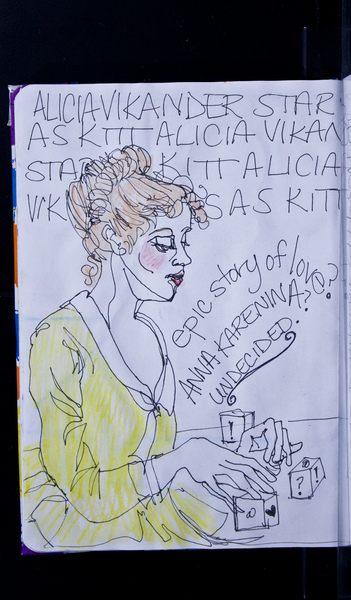 ALICIA VIKANDER STAR
AS KITT ALICIA VIKAN
STAR KITT ALICIA
VIK S AS KITT
epic story of love?
ANNA KARENINA??
UNDECIDED.
Y
?
!